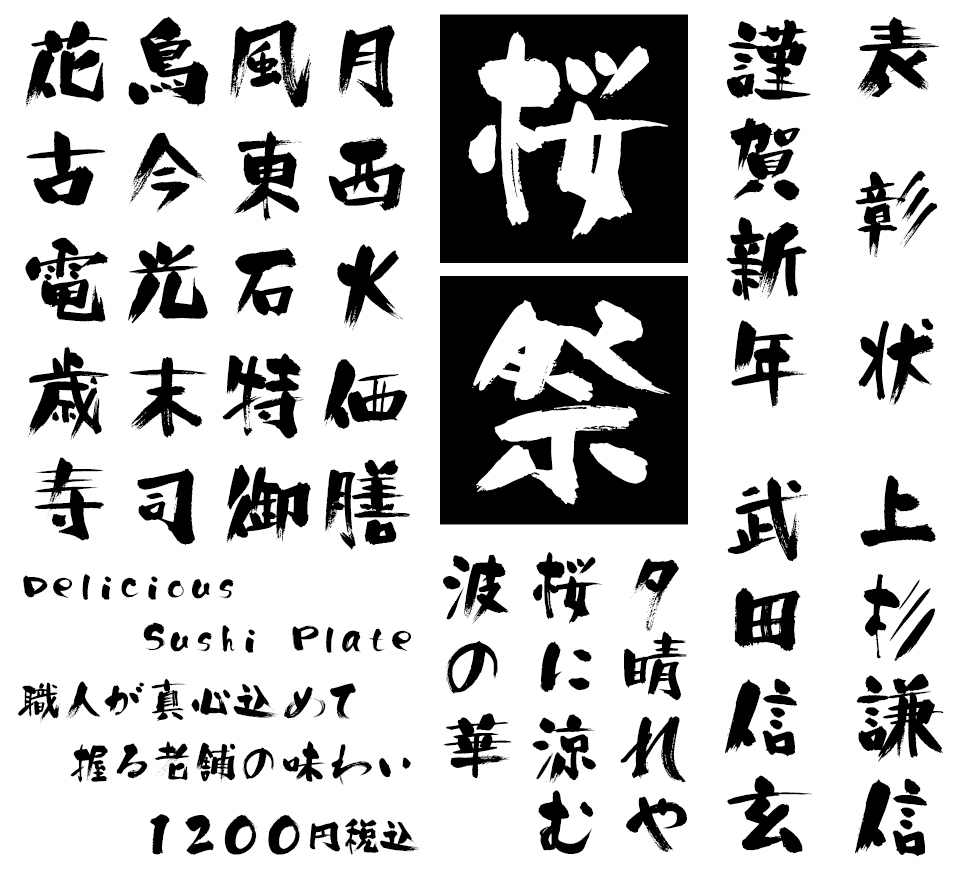 花鳥風月
古今東西
電光石火
歳末特価
寿司御膳
Delicious
Sushi Plate
職人が真心込めて
握る老舗の味わい
1200円税込
桜
祭
夕晴れや
桜に涼む
波の華
表彰状
謹賀新年
上杉謙信
武田信玄